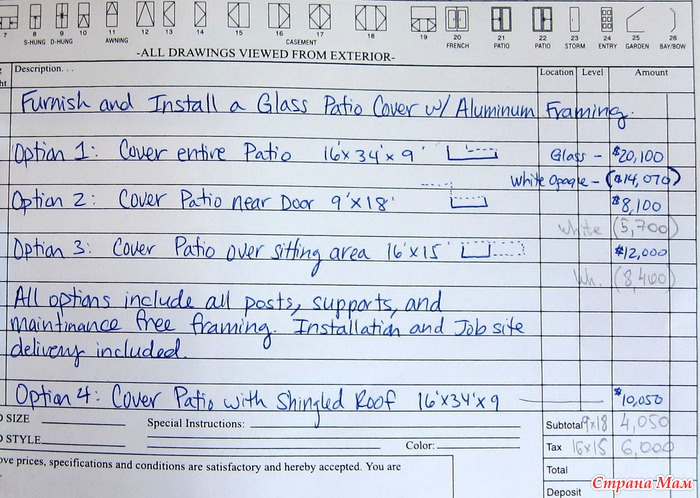 7 8 9 10 11 12 13 14 15 16 17 18 19 20 21 22 23 24 25 26
S-HUNG D-HUNG AWNING CASEMENT FRENCH PATIO PATIO STORM ENTRY GARDEN BAY/BOW
-ALL DRAWINGS VIEWED FROM EXTERIOR-
Description. . . Location Level Amount
Furnish and Install a Glass Patio Cover w/ Aluminum Framing.
Option 1: Cover entire Patio 16'x34'x9' Glass - $20,100
White Opaque - ($14,070)
Option 2: Cover Patio near Door 9'x18' $8,100
white (5,700)
Option 3: Cover Patio over sitting area 16'x15' $12,000
Wh. (8,400)
All options include all posts, supports, and
maintinance free framing. Installation and Job site
delivery included.
Option 4: Cover Patio with Shingled Roof 16'x34'x9 $10,050
SIZE Special Instructions: Subtotal 9x18 4,050
STYLE Color: Tax 16x15 6,000
ve prices, specifications and conditions are satisfactory and hereby accepted. You are Total
Deposit
Страна Мам